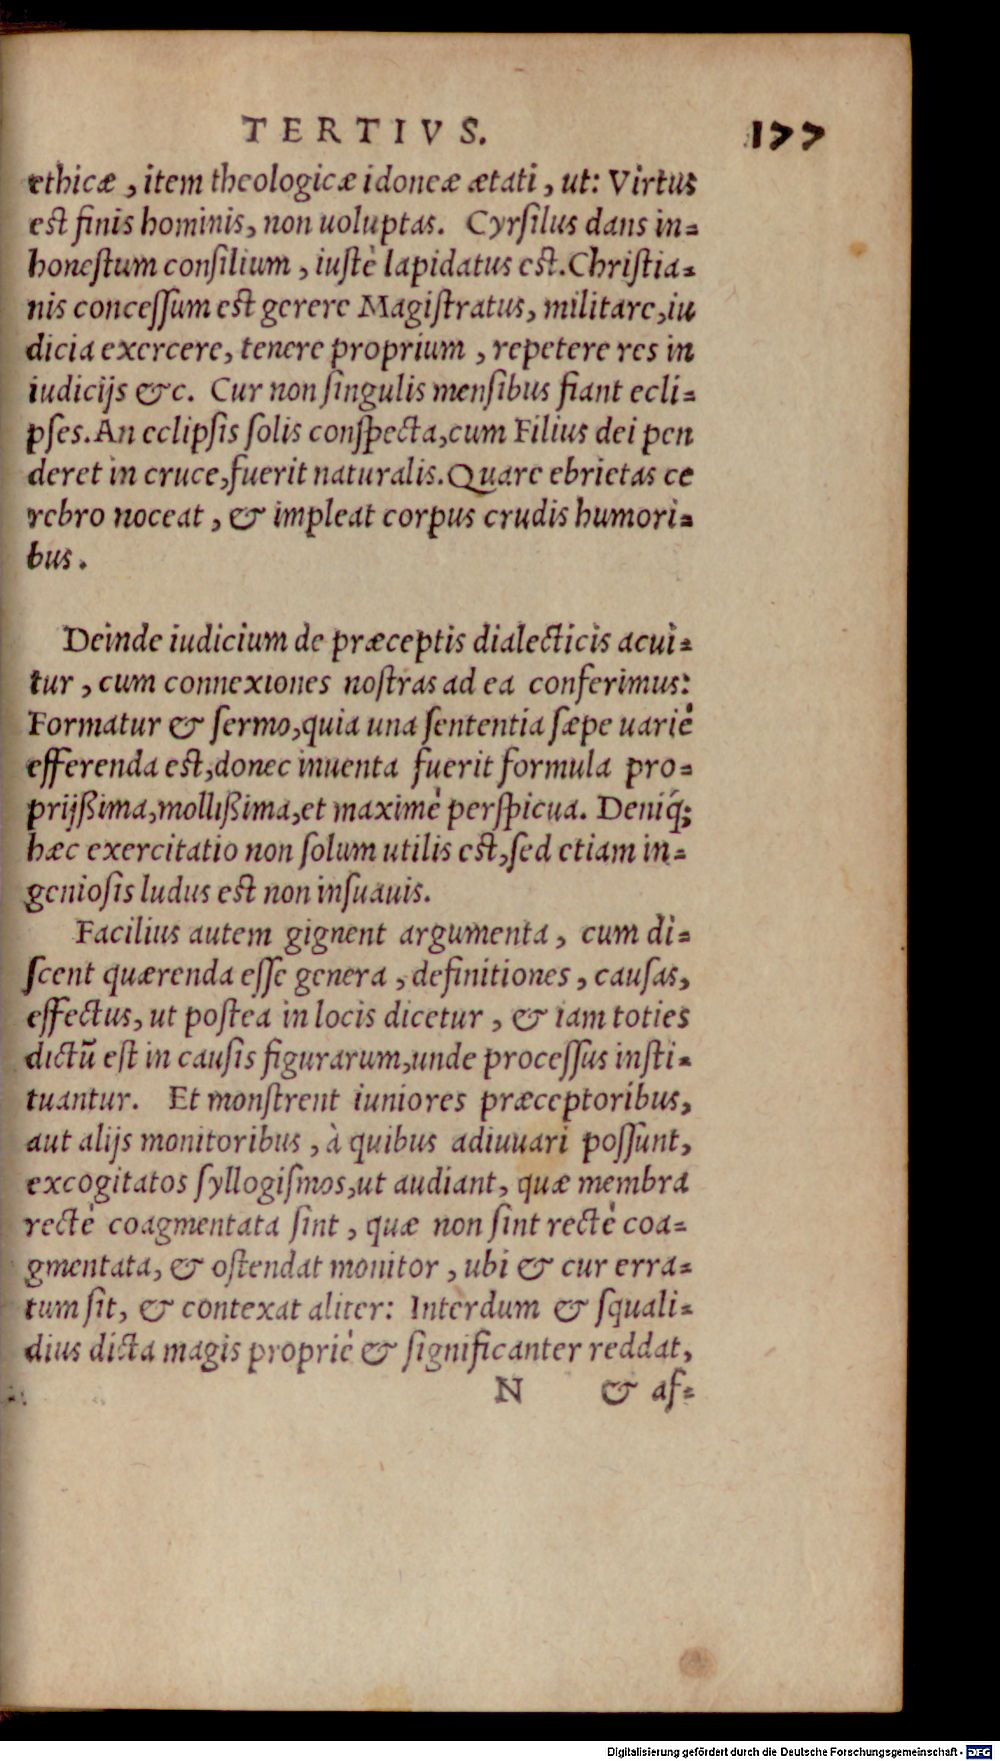 TERTIVS. 177
ethicæ, item theologicæ idoneæ ætati, ut: Virtus
est finis hominis, non uoluptas. Cyrſilus dans in=
honeſtum conſilium, iuſtè lapidatus est. Chriſtia=
nis conceſſum est gerere Magiſtratus, militare, iu
dicia exercere, tenere proprium, repetere res in
iudicijs &c. Cur non ſingulis menſibus fiant ecli=
pſes. An eclipſis ſolis conſpecta, cum Filius dei pen
deret in cruce, fuerit naturalis. Quare ebrietas ce
rebro noceat, & impleat corpus crudis humori=
bus.
Deinde iudicium de præceptis dialecticis acui=
tur, cum connexiones nostras ad ea conferimus:
Formatur & ſermo, quia una ſententia ſæpe uariè
efferenda est, donec inuenta fuerit formula pro=
prijßima, mollißima, et maximè perſpicua. Deniq́;
hæc exercitatio non ſolum utilis est, ſed etiam in=
genioſis ludus est non inſuauis.
Facilius autem gignent argumenta, cum di=
ſcent quærenda eſſe genera, definitiones, cauſas,
effectus, ut poſtea in locis dicetur, & iam toties
dictũ eſt in cauſis figurarum, unde proceſſus inſti=
tuantur. Et monſtrent iuniores præceptoribus,
aut alijs monitoribus, à quibus adiuuari poſſunt,
excogitatos ſyllogiſmos, ut audiant, quæ membra
rectè coagmentata ſint, quæ non ſint rectè coa=
gmentata, & oſtendat monitor, ubi & cur erra=
tum ſit, & contexat aliter: Interdum & ſquali=
dius dicta magis propriè & ſignificanter reddat,
N & aſ=
Digitalisierung gefördert durch die Deutsche Forschungsgemeinschaft - DFG